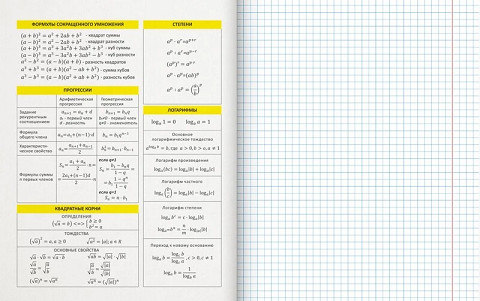 ФОРМУЛЫ СОКРАЩЕННОГО УМНОЖЕНИЯ
(a + b)² = a² + 2ab + b² - квадрат суммы
(a − b)² = a² − 2ab + b² - квадрат разности
(a + b)³ = a³ + 3a²b + 3ab² + b³ - куб суммы
(a − b)³ = a³ − 3a²b + 3ab² − b³ - куб разности
a² − b² = (a − b)(a + b) - разность квадратов
a³ + b³ = (a + b)(a² − ab + b²) - сумма кубов
a³ − b³ = (a − b)(a² + ab + b²) - разность кубов
ПРОГРЕССИИ
Арифметическая прогрессия
Геометрическая прогрессия
Задание рекуррентным соотношением
aₙ₊₁ = aₙ + d
a₁ - первый член
d - разность
bₙ₊₁ = bₙq
b₁≠0 - первый член
q≠0 - знаменатель
Формула общего члена
aₙ=a₁+(n−1)·d
bₙ = b₁qⁿ⁻¹
Характеристическое свойство
Формулы суммы n первых членов
если q≠1
если q=1
Sₙ = n · b₁
КВАДРАТНЫЕ КОРНИ
ОПРЕДЕЛЕНИЯ
ТОЖДЕСТВА
(√a)² = a, a ≥ 0
√a² = |a|, a ∈ R
ОСНОВНЫЕ СВОЙСТВА
√a · b = √a · √b
√ab = √|a| · √|b|
СТЕПЕНИ
aᵖ · aʳ=aᵖ⁺ʳ
ЛОГАРИФМЫ
logₐ 1 = 0 logₐ a = 1
Основное логарифмическое тождество
Логарифм произведения
logₐ(bc) = logₐ|b| + logₐ|c|
Логарифм частного
logₐ(b/c) = logₐ|b| − logₐ|c|
Логарифм степени
logₐ bᶜ = c · logₐ|b|
Переход к новому основанию